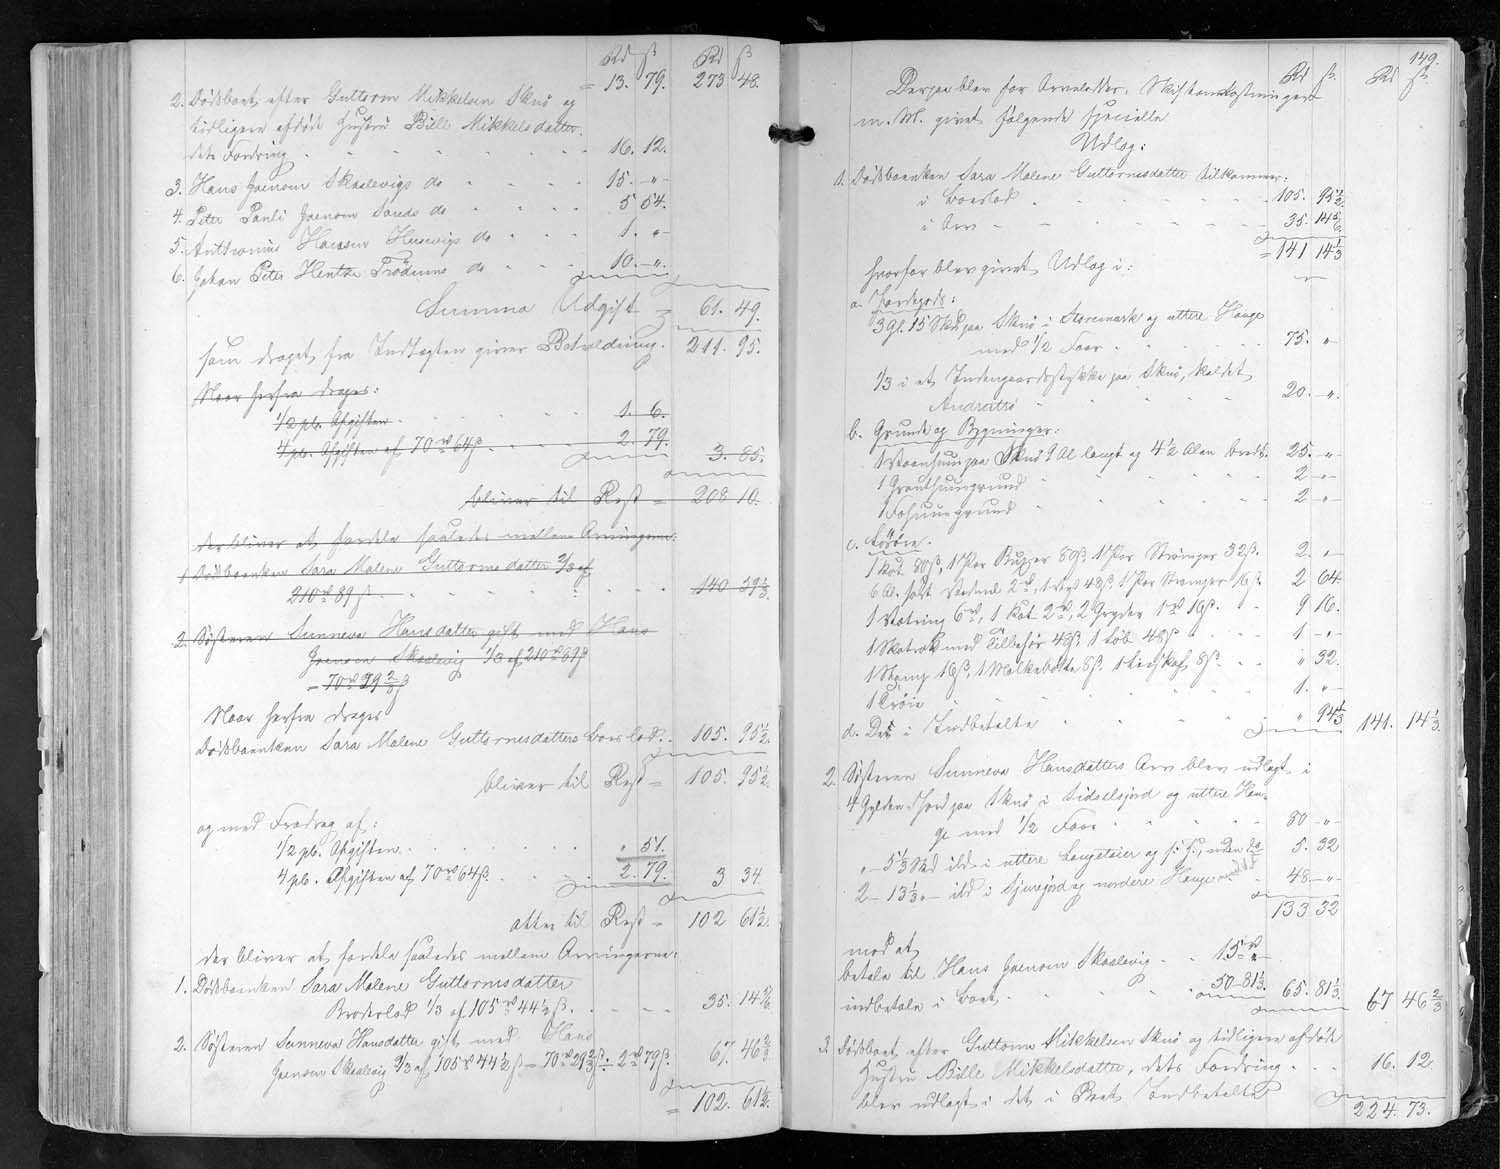 Rd ß Rd ß
= 13. 79. 273 48.
2. Dødsboet efter Guttorm Mikkelsen Skuø og
tidligere afdøde Hustru Bille Mikkelsdatter
dets Fordring 16. 12.
3. Hans Joensen Skaalevigs do 15. - " -
4. Peter Pauli Joensen Sands do 5 54.
5. Anthonius Hansen Husevigs do 1. " -
6. Johan Peter Hentze Frodunes do 10. - ".
Summa Udgift = 61. 49.
som draget fra Indtægten giver Beholdning. 211. 95.
Naar herfra drages:
1/2 pCt. Afgiften 1. 6.
4 pCt. Afgiften af 70 rd 64 ß 2. 79.
3. 85.
bliver til Rest = 208 10.
der bliver at fordele saaledes mellem Arvingerne:
1 Dødsboenken Sara Malene Guttormsdatter 2/3 af
210 rd 89 ß 140 59 1/3.
2. Søsteren Sunneva Hansdatter gift med Hans
Joensen Skaalevig 1/3 af 210 rd 89 ß
= 70 rd 29 2/3 ß
Naar herfra drages
Dødsboenken Sara Malene Guttormsdatters Boeslod. 105. 95 1/2.
bliver til Rest = 105. 95 1/2.
og med Fradrag af:
1/2 pCt. Afgiften " 51.
4 pCt. Afgiften af 70 rd 64 ß 2. 79. 3 34.
atter til Rest = 102 61 1/2.
der bliver at fordele saaledes mellem Arvingerne:
1. Dødsboenken Sara Malene Guttormsdatter
Broderlod 1/3 af 105 rd 44 1/2 ß 35. 14 5/6.
2. Søsteren Sunneva Hansdatter gift med Hans
Joensen Skaalevig 2/3 af 105 rd 44 1/2 ß = 70 rd 29 2/3 ß ÷ 2 rd 79 ß. 67. 46 2/3.
= 102. 61 1/2.
149.
Rd ß. Rd ß.
Derpaa blev for Arvelodder, Skifteomkostninger
m. M. givet følgende specielle
Udlæg:
1. Dødsboenken Sara Malene Guttormsdatter tilkommer:
i Boeslod 105. 95 1/2
i Arv 35. 14 5/6
= 141 14 1/3
hvorfor blev givet Udlæg i:
a. Jordegods:
3 Gl. 15 Skd paa Skuø i Storemark og uttere Hauge
med 1/2 Faar 75. "
1/3 i et Indengaardsstykke paa Skuø, kaldet
Andratrø 20. - ".
b. Grunde og Bygninger:
1 Vaanhuus paa Skuø 9 Al langt og 4 1/2 Alen bredt. 25. - " -
1 Grauthuusgrund 2 - " -
1 Fohuusgrund 2 - " -
c. Løsøre.
1 Kot 80 ß, 1 Par Buxer 80 ß 1 Par Strømper 32 ß. 2. "
6 Al. sort Vadmel 2 rd, 1 Vest 48 ß 1 Par Strømper 16 ß. 2 64.
1 Vætning 6 rd, 1 Kot 2 rd, 2 Gryder 1 rd 16 ß. 9 16.
1 Skatrok med Tilbehør 48 ß. 1 Løb 48 ß 1 - " -
1 Stamp 16 ß, 1 Melkebøtte 8 ß. 1 8 ß. " 32.
1 Trøie 1. " -
d. Det i Indbetalte " 94 1/3 141. 14 1/3.
2. Søsteren Sunneva Hansdatters Arv blev udlagt i
4 Gylden Jord paa Skuø i Lidtelsjord og uttere Hau-
ge med 1/2 Faar 80 - " -
" - 5 1/3 Skd ibd. i uttere Langeteier og s. S., uden do 5. 32
2 - 13 1/3 " - ibd i Sjurejord og nordere Hauge 48 - " -
133 32
mod at
betale til Hans Joensen Skaalevig 15 rd "
indbetale i Boet 50 - 81 1/3. 65. 81 1/3. 67 46 2/3
3. Dødsboet efter Guttorm Mikkelsen Skuø og tidligere afdøde
Hustru Bille Mikkelsdatter, dets Fordring 16. 12.
blev udlagt i det i Boet Indbetalte
224. 73.